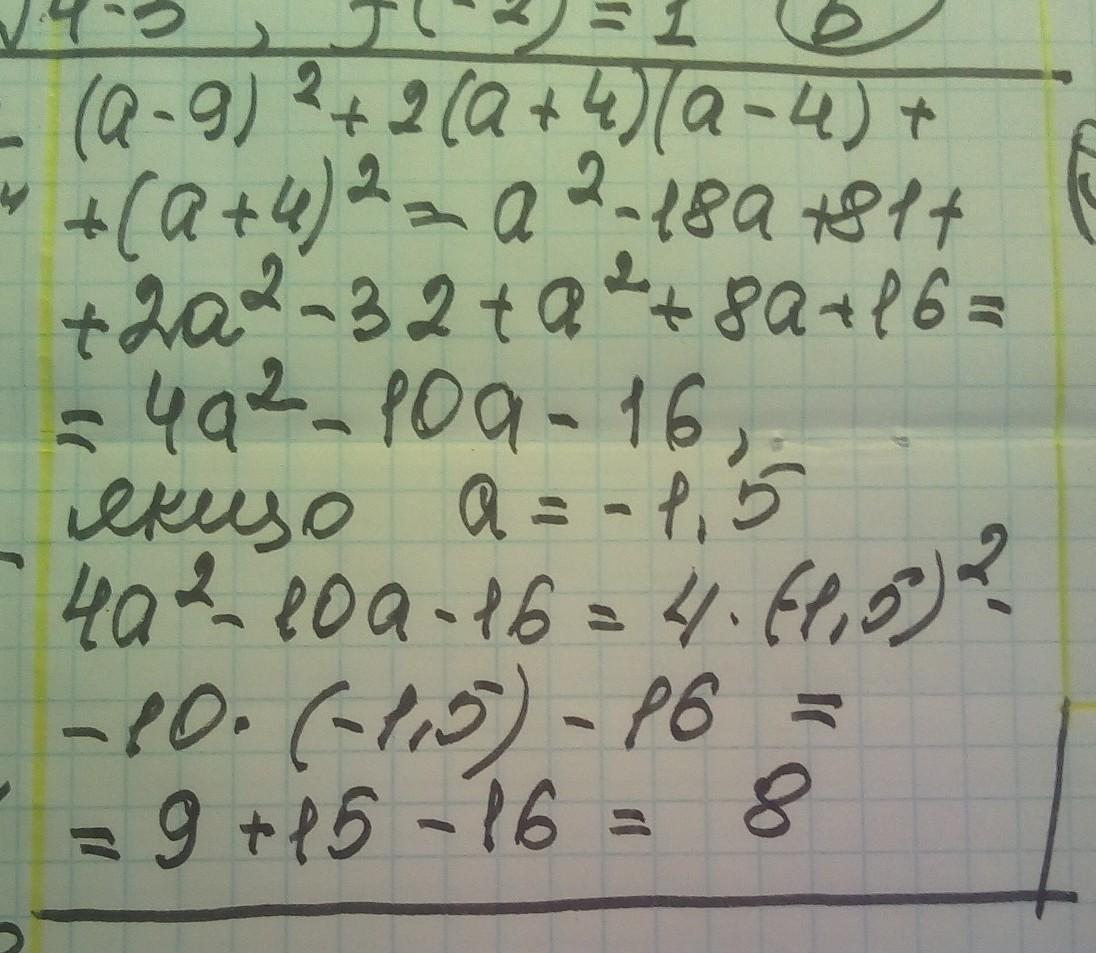 (a-9)² + 2(a+4)(a-4) +
+(a+4)² = a² - 18a + 81 +
+ 2a² - 32 + a² + 8a + 16 =
= 4a² - 10a - 16,
якщо a = -1,5
4a² - 10a - 16 = 4 · (-1,5)² -
- 10 · (-1,5) - 16 =
= 9 + 15 - 16 = 8